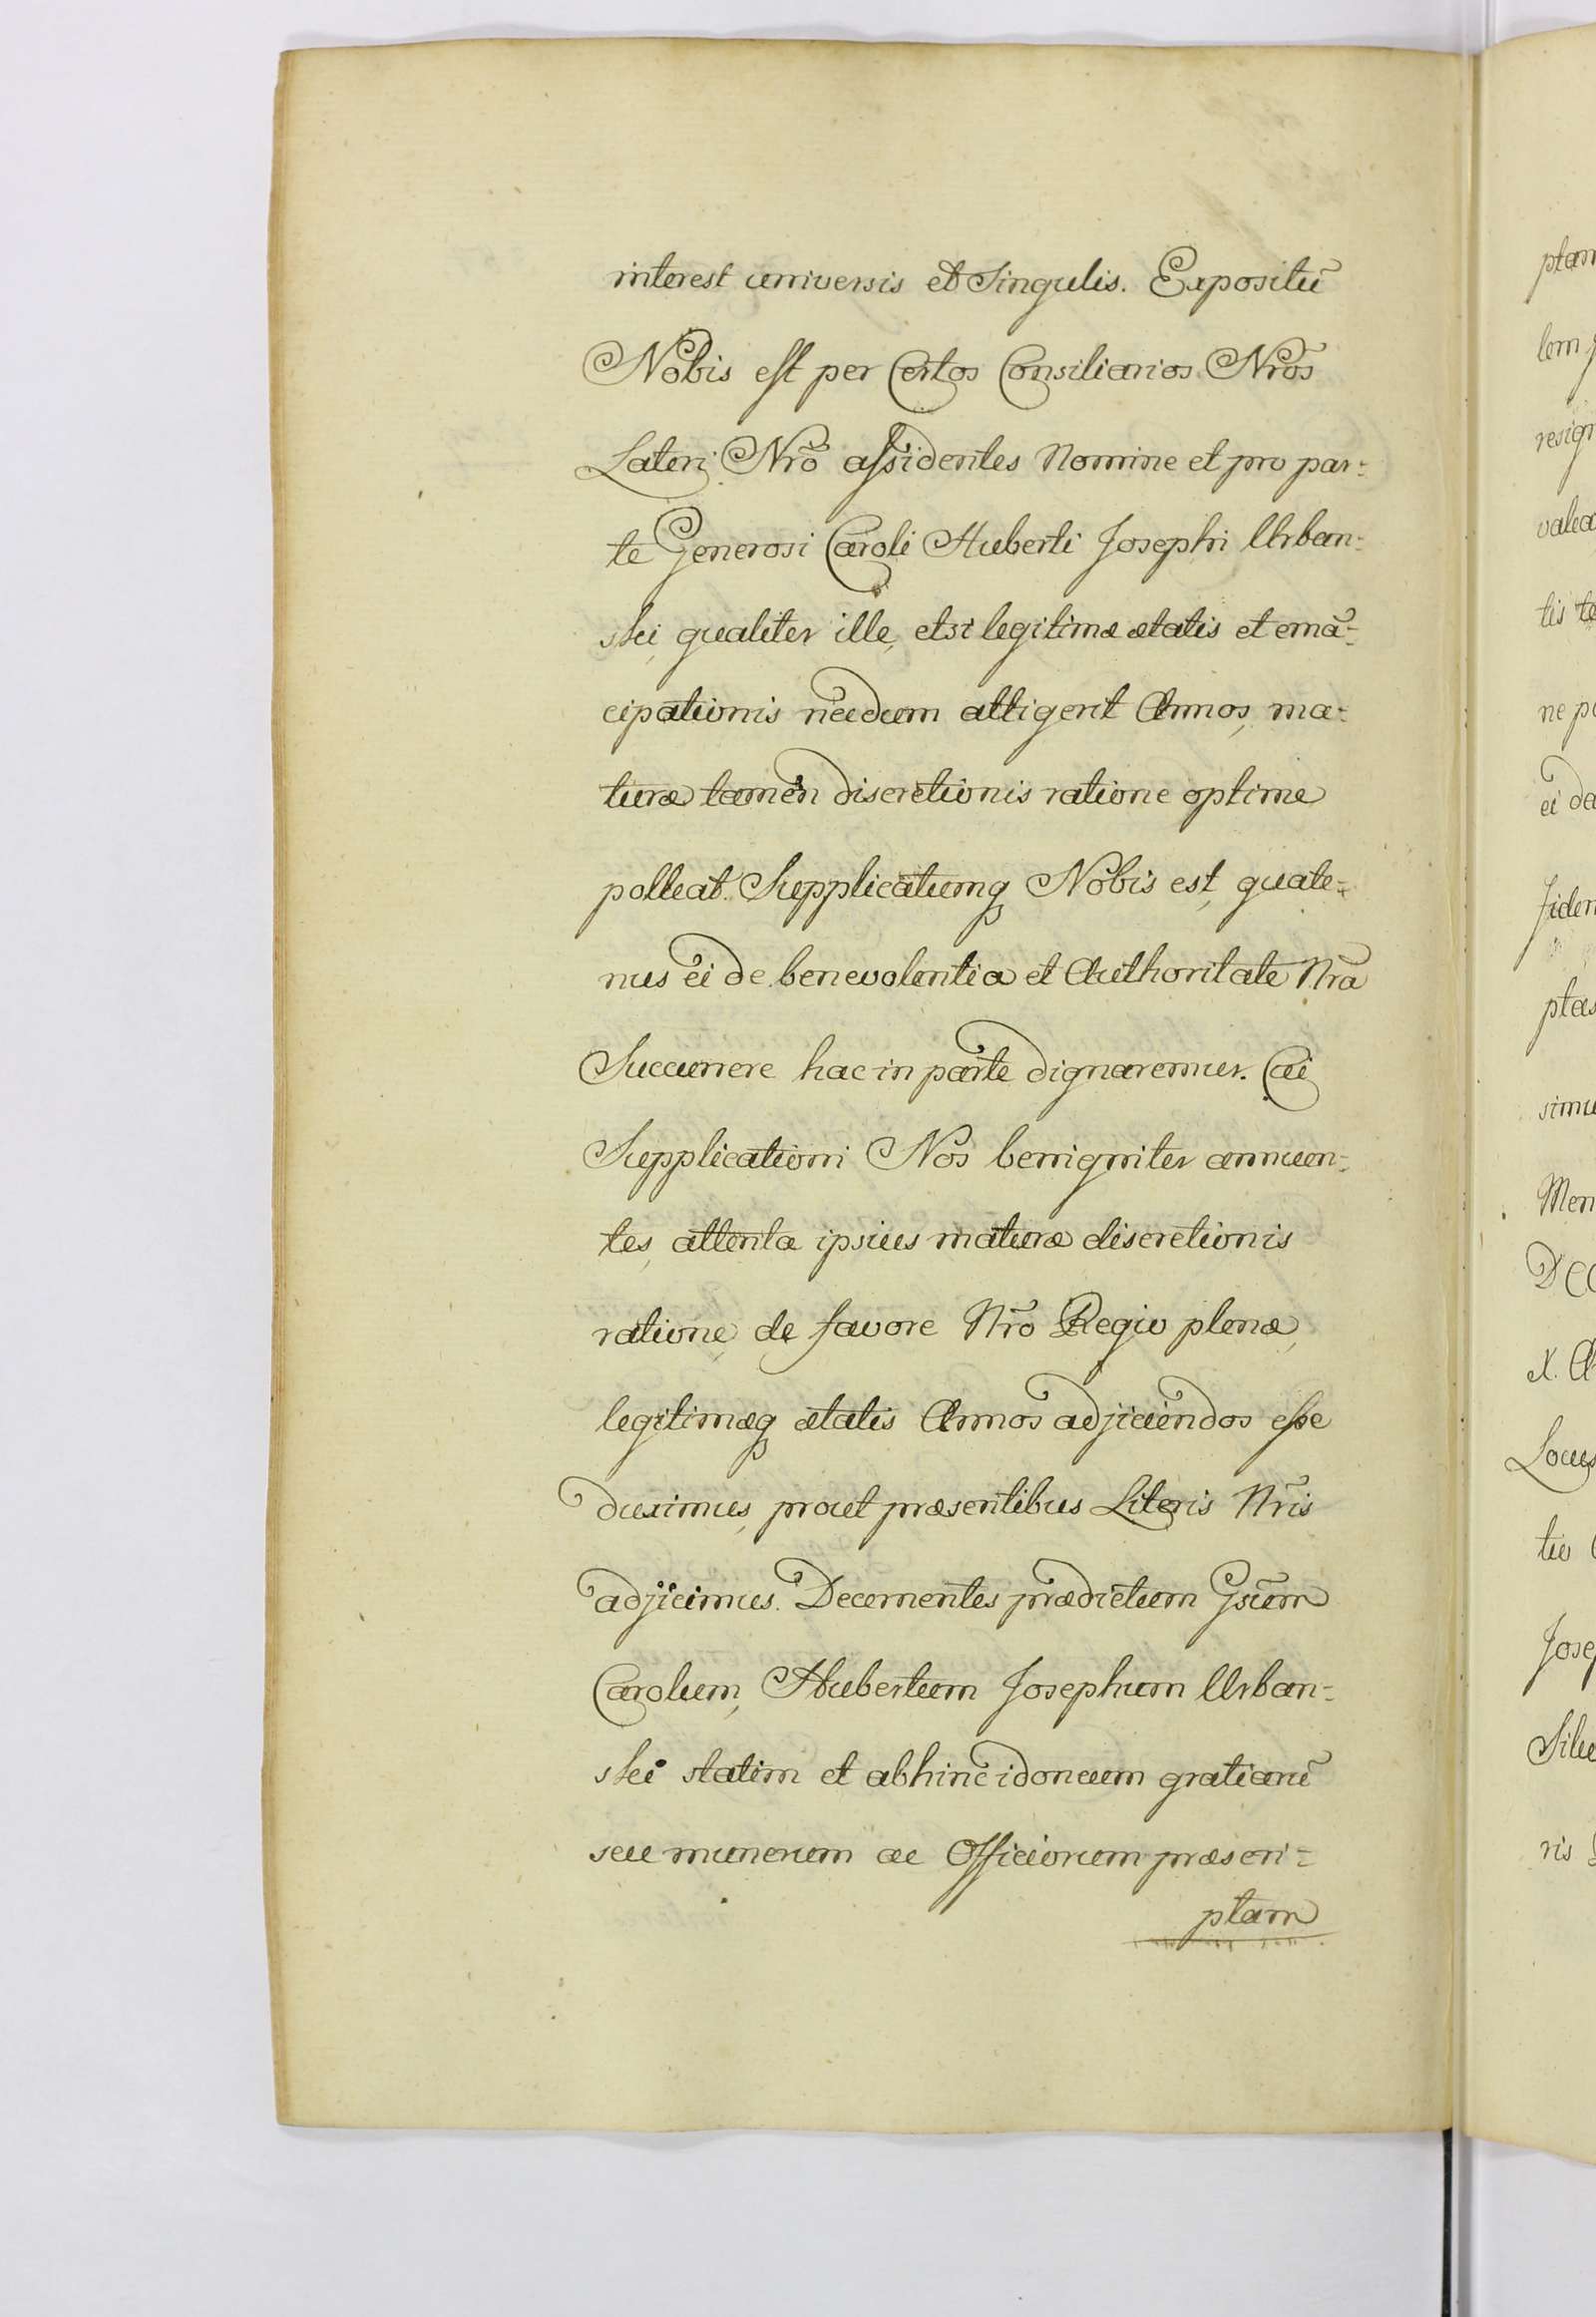 interest universis et Singulis. Expositū
Nobis est per Certos Consiliarios Nrōs
Lateri Nrō assidentes Nomine et pro par=
te Generosi Caroli Huberti Josephi Urban=
ski, qualiter ille, etsi legitimæ ætatis et emā=
cipationis necdum attigerit Annos, ma=
turæ tamen discretionis ratione optime
polleat. Supplicatumq Nobis est, quate=
nus ei de benevolentia et Authoritate Nrā
Succurrere hac in parte dignaremur. Cui
Supplicationi Nos benigniter annuen=
tes, attenta ipsius maturæ discretionis
ratione, de favore Nrō Regio plenæ,
legitimæq ætatis Annos adjiciendos esse
duximus, prout præsentibus Literis Nrīs
adjicimus. Decernentes prædictum Gsūm
Carolum, Hubertum Josephum Urban=
ski statim et abhinc idoneum gratiarū
seu munerum ac Officiorum præscri=
ptam
ptam
lem
resign
valea
tis te
ne po
ei da
fiden
ptas
simu
Men
DCC
X. A
Locus
tio
Jose
Silv
ris